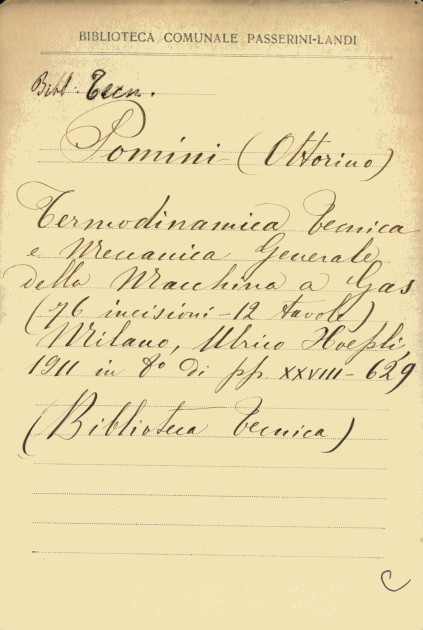 BIBLIOTECA COMUNALE PASSERINI-LANDI
Bibl. Tecn.
Pomini (Ottorino)
Termodinamica Tecnica
e Meccanica Generale
della Macchina a Gas
(76 incisioni - 12 tavole)
Milano, Ulrico Hoepli,
1911 in 8° di pp. XXVIII - 629
(Biblioteca Tecnica)
C